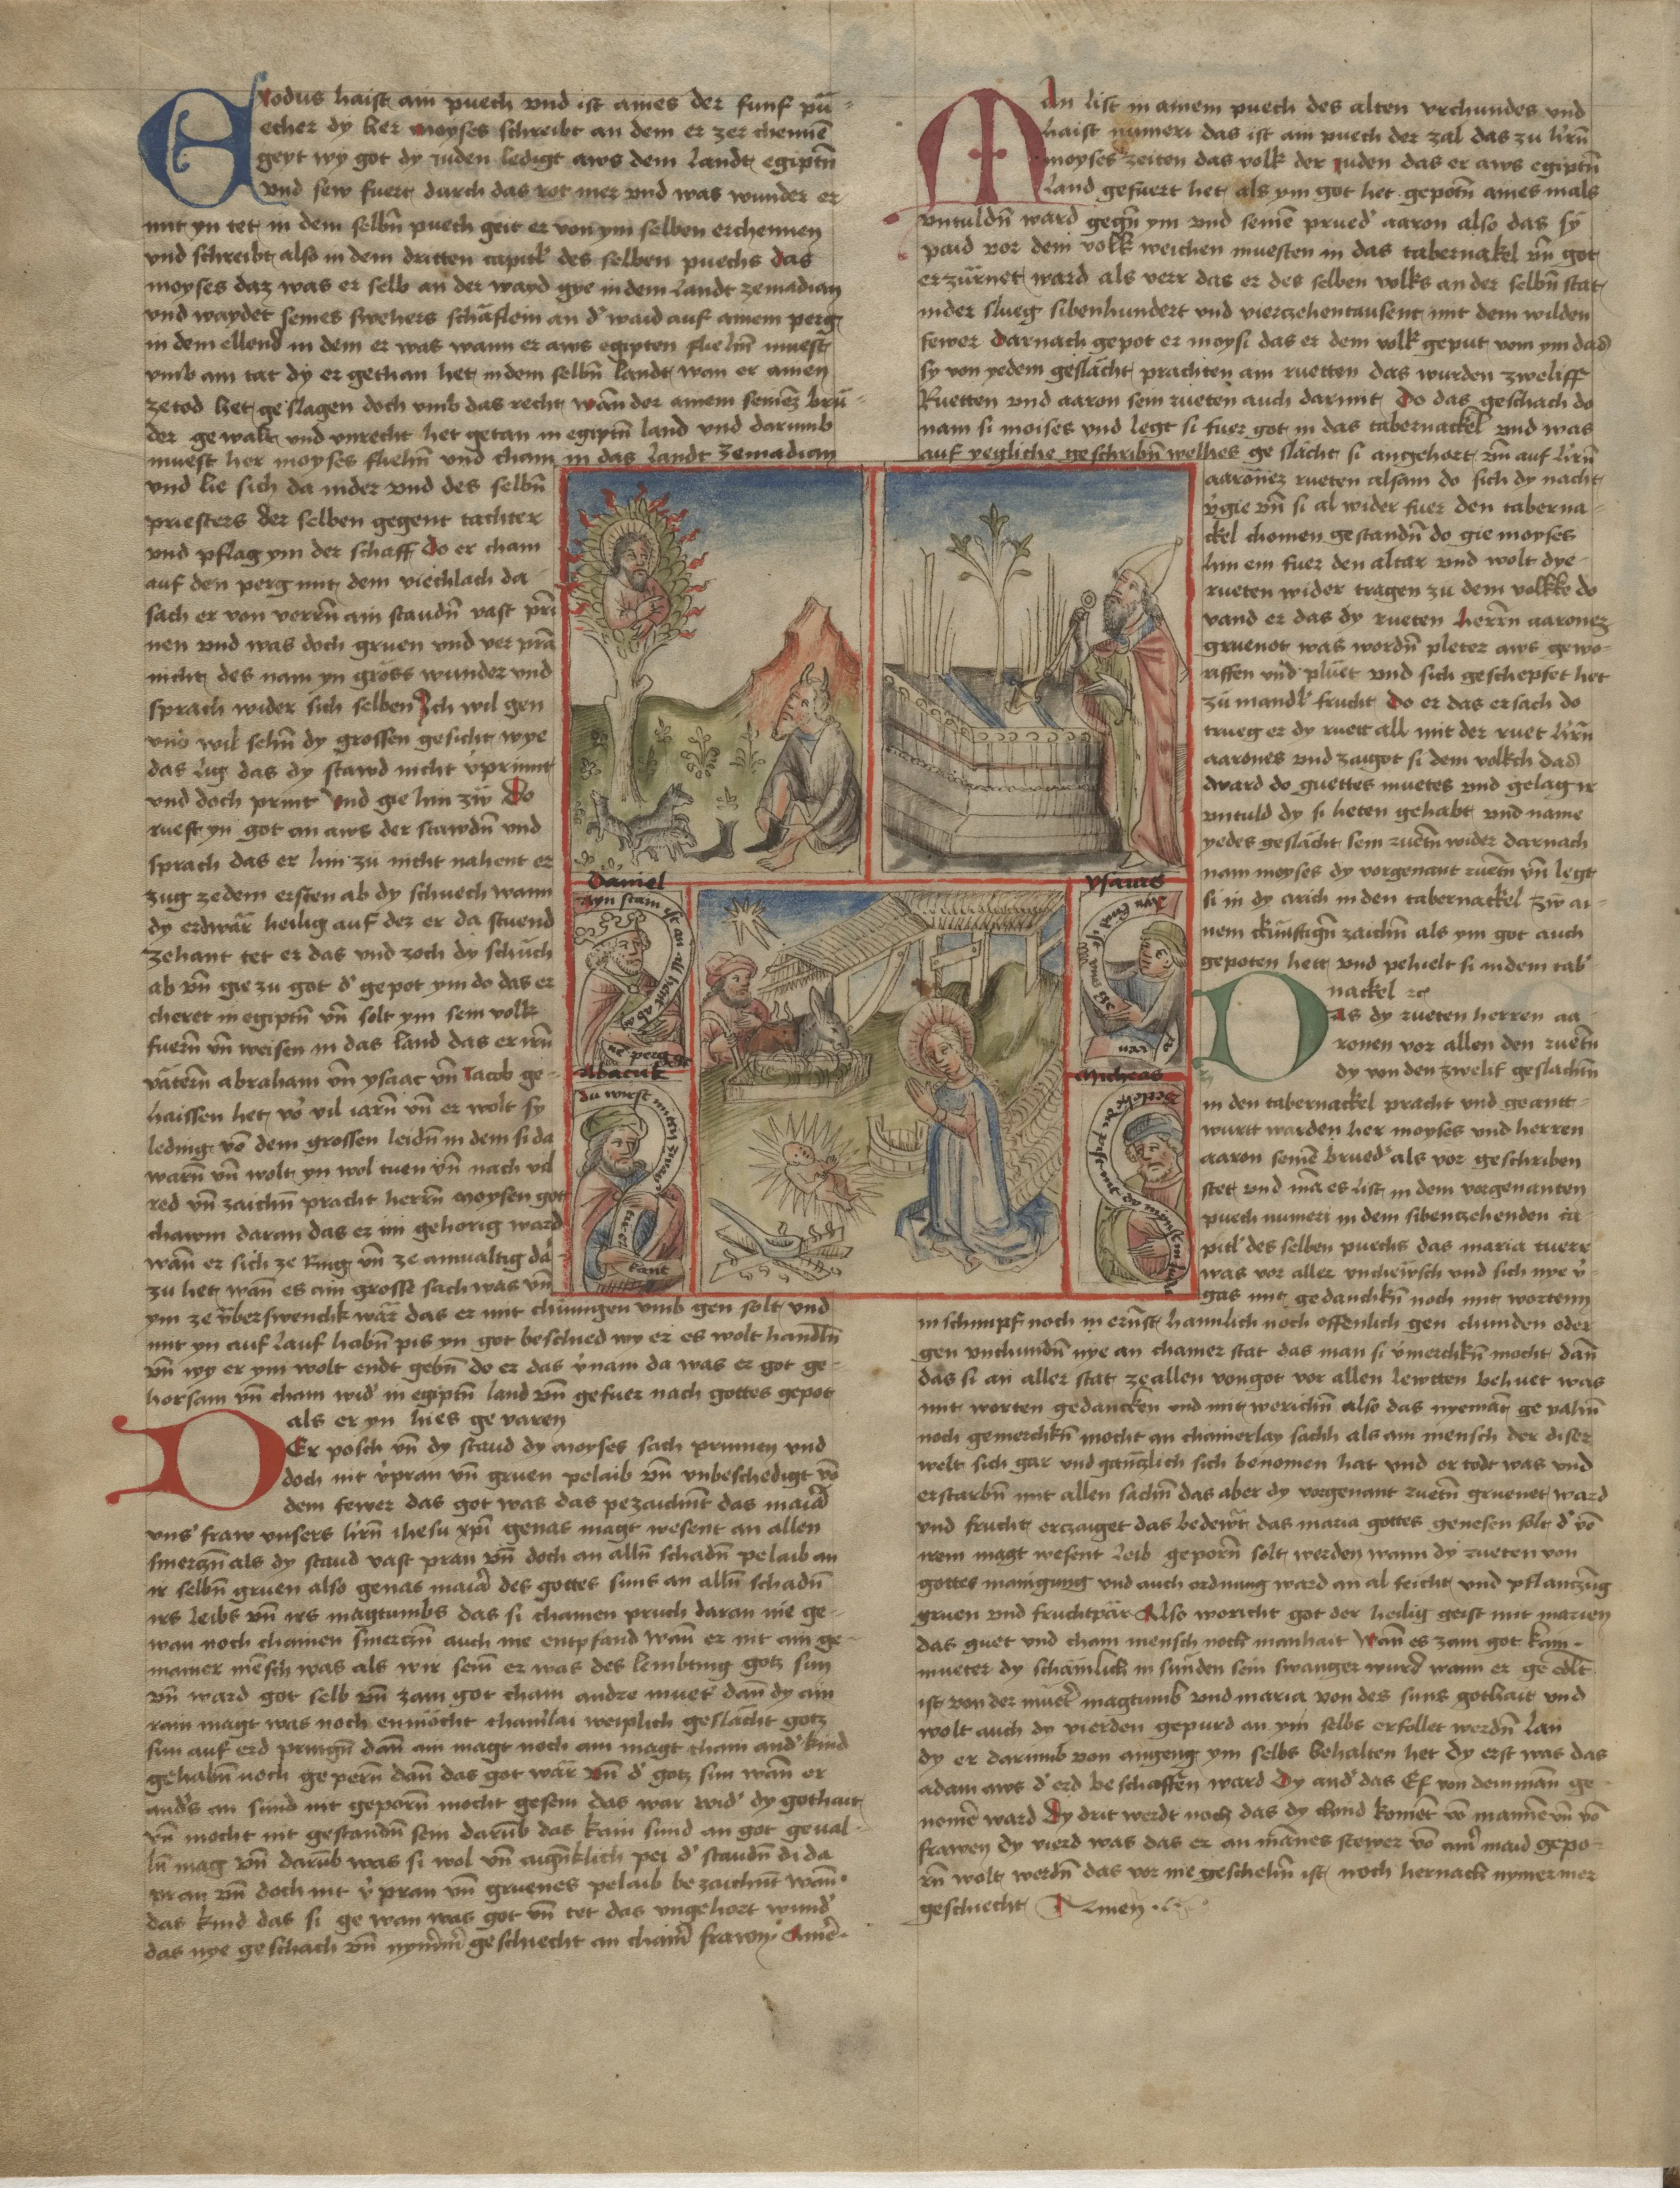 Exodus haist ain puech vnd ist aines der funf pu=
echer dy her moyses schreibt an dem er zer chennē
geyt wy got dy iuden ledigt aws dem landt egiptn̄
vnd sew fuert durch das rot mer vnd was wunder er
mit yn tet in dem selbn̄ puech geit er von ym selben erchennen
vnd schreibt also in dem dritten capitl des selben puechs das
moyses daz was er selb an der wayd gye in dem landt zemadian
vnd waydet seines swehers schäflein an d' waid auf ainem perg
in dem ellend in dem er was wann er aws egipten fliehn̄ muest
vmb ain tat dy er gethan het in dem selbn̄ landt wan er ainen
zetod het geslagen doch vmb das recht wān der ainem seinez brū=
der gewalt vnd vnrecht het getan in egiptn̄ land vnd darumb
muest her moyses fliehn̄ vnd cham in das landt zemadian
vnd lie sich da nider vnd des selbn̄
priesters der selben gegent tachter
vnd pflag ym der schaff do er cham
auf den perg mit dem viechlach da
sach er von verrn̄ ain staudn̄ vast prī
nen vnd was doch gruen vnd ver prā
nicht des nam yn gross wunder vnd
sprach wider sich selben Ich wil gen
vnd wil sehn̄ dy grossen gesicht wye
das lig das dy stawd nicht v̓prinnt
vnd doch print vnd gie hin zw̄ Do
rueft yn got an aws der stawdn̄ vnd
sprach das er hin zu nicht nahent er
zug zedem ersten ab dy schuech wann
dy erd wär heilig auf der er da stuend
zehant tet er das vnd zoch dy schuch
ab vn̄ gie zu got d' gepot ym do das er
cheret in egiptn̄ vn̄ solt ym sein volk
fuern̄ vn̄ weisen in das land das er irn̄
vätern̄ abraham vn̄ ysaac vn̄ Iacob ge=
haissen het vō vil iarn̄ vn̄ er wolt sy
leding vō dem grossen leidn̄ in dem si da
warn̄ vn̄ wolt yn wol tuen vn̄ nach vil
red vn̄ zaichn̄ pracht herrn̄ moysen got
chawm daran das er im gehorig ward
wān er sich ze ring vn̄ ze ainualtig da
zu het wān es ain grosse sach was vn̄
ym ze v̈berswenckh wär das er mit chüningen vmb gen solt vnd
mit yn auf lauf habn̄ pis yn got beschied wy er es wolt handln̄
vn̄ wy er ym wolt endt gebn̄ do er das v̓nam da was er got ge=
horsam vn̄ cham wid' in egiptn̄ land vn̄ gefuer nach gottes gepot
als er yn hies ge varen
Der posch vn̄ dy staud dy moyses sach prinnen vnd
doch nit v̓pran vn̄ gruen pelaib vn̄ vnbeschedigt vō
dem fewer das got was das pezaichnt das maria
vns' fraw vnsers hrn̄ ihesu xpi genas magt wesent an allen
smerczn̄ als dy staud vast pran vn̄ doch an alln̄ schadn̄ pelaib an
ir selbn̄ gruen also genas maria des gottes suns an alln̄ schadn̄
irs leibs vn̄ irs magtumbs das si chainen pruch daran nie ge=
wan noch chainen smerczn̄ auch nie entpfand wān er nit ain ge=
mainer mēsch was als wir sein er was des lembting gotz sun
vn̄ ward got selb vn̄ zam got cham andre muet' dān dy ain
rain magt was noch enmöcht chainlai weiplich geslächt gotz
sun auf erd pringn̄ dān ain magt noch ain magt cham and' kind
gehabn̄ noch gepern̄ dān das got wär vn̄ d' gotz sun wān er
and's an sünd nit geporn̄ mocht gesein das war wid' dy gothait
vn̄ mocht nit gestandn̄ sein darūb das kain sund an got geual=
ln̄ mag vn̄ darūb was si wol vn̄ pei d' staudn̄ di da
pran vn̄ doch nit v̓pran vn̄ gruenes pelaib bezaichnt wān
das kind das si ge wan was got vn̄ tet das vngehort wund'
das nye geschach vn̄ nym̄m̄ geschiecht an chain̄ frawn̄ Amē·
Man list in ainem puech des alten vrchundes vnd
haist numeri das ist ain puech der zal das zu hrn̄
moyses zeiten das volk der iuden das er aws egiptn̄
land gefuert het als ym got het gepotn̄ aines mals
vntuldn̄ ward gegn̄ ym vnd seinē prued' aaron also das sy
paid vor dem volk weichen muesten in das tabernakel vn̄ got
erzürnet ward als verr das er des selben volks an der selbn̄ stat
nider slueg sibenhundert vnd vierzehentausent mit dem wilden
fewer Darnach gepot er moysi das er dem volk geput vom ym das
sy von yedem geslächt prachten ain ruetten das wurden zweliff
Ruetten vnd aaron sein rueten auch darmit Do das geschach do
nam si moises vnd legt si fuer got in das tabernackel vnd was
auf yegliche geschribn̄ welhes ge slächt si angehort vn̄ auf hrn̄
aaronez rueten alsam do sich dy nacht
v̓gie vn̄ si al wider fuer den taberna=
ckel chomen gestandn̄ do gie moyses
hin ein fuer den altar vnd wolt dye
rueten wider tragen zu dem volkke do
vand er das dy rueten herrn̄ aaronez
gruenot was wordn̄ pleter aws gewo=
raffen vnd pluet vnd sich geschepfet het
zu mandl' frucht Do er das ersach do
trueg er dy ruett all mit der ruet hrn̄
aarones vnd zaigot si dem volkch das
dward do guettes muetes vnd gelag ir
vntuld dy si heten gehabt vnd name
yedes geslächt sein ruetn̄ wider darnach
nam moyses dy vorgenant ruetn̄ vn̄ legt
si in dy arich in den tabernackel zw̄ ai=
nem chünftign̄ zaichn̄ als ym got auch
gepoten hett vnd pehielt si in dem tab'
nackel ꝛc
Das dy rueten herren aa
ronen vor allen den ruetn̄
dy von den zwelif geslächtn̄
in den tabernackel pracht vnd geantt=
wurtt warden her moyses vnd herren
aaron seinē brued' als vor geschriben
stet vnd mā es list in dem vorgenanten
puech numeri in dem sibentzehenden ca=
pitl des selben puechs das maria tuerr
was vor aller vncheẅsch vnd sich nye v̓
gas mit gedanckhn̄ noch mit wortenn
in schimpf noch in ernst haimlich noch offenlich gen chunden oder
gen vnchundn̄ nye an chainer stat das man si v̓merchkn̄ mocht dān
das si an aller stat ze allen von got vor allen lewtten behuet was
mit worten gedancken vnd mit werichn̄ also das nyemāt ge valn̄
noch gemerchkn̄ mocht an chainerlay sachh als ain mensch der diser
welt sich gar vnd gänczlich sich benomen hat vnd er todt was vnd
erstarbn̄ mit allen sachn̄ das aber dy vorgenant ruetn̄ gruenet ward
vnd frucht erczaiget das bedewt das maria gottes genesen solt d' vō
irem magt wesent leib geporn̄ solt werden wann dy rueten von
gottes mainigung vnd auch ordnung ward an al feicht vnd pflanczūg
gruen vnd fruchtpär Also woricht got der heilig geist mit marien
das guet vnd cham mensch noch manhait wān es zam got kain
mueter dy schämlich in sünden sein swanger wurd wann er geedlt
ist von der muet' magtumb vnd maria von des suns gothait vnd
wolt auch dy vierden gepurd an ym selbs erfollet werdn̄ lan
dy er darumb von angeng ym selbs behalten het dy erst was das
adam aws d' erd beschaffen ward Dy and' das Ef von dem man ge=
nomē ward Dy drit werdt noch das dy chind komēt vō mannē vn̄ vō
frawen dy vierd was das er an mānes stewer vō ain' maid gepo=
rn̄ wolt werdn̄ das vor nie geschehn̄ ist noch hernach nymermer
geschiecht Amen
Daniel
ayn stain ist an all hent ab ai
ne perg ge
Ysaias
Abacuk
du wirst mitten zwair
tier
kant
Micheas